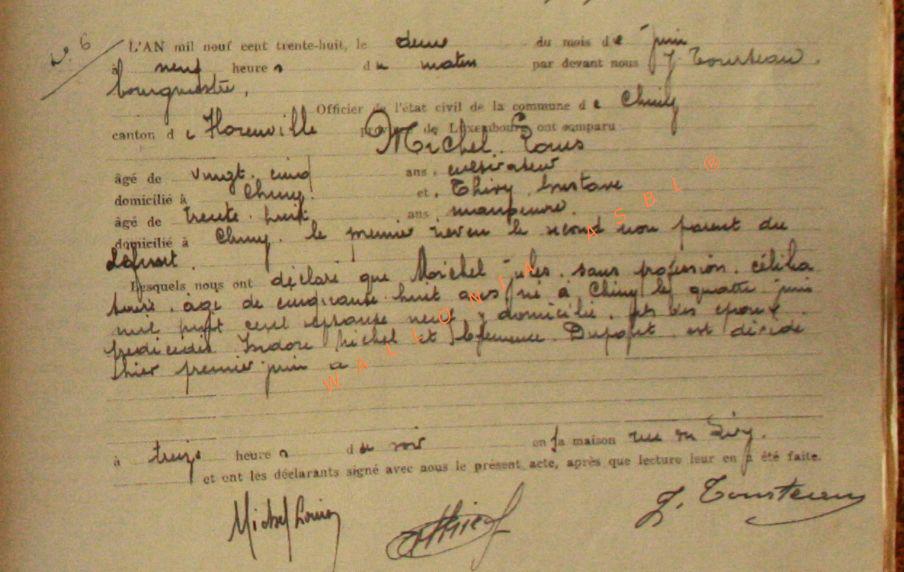 N° 6
L'AN mil neuf cent trente-huit, le deux du mois de juin
à neuf heures du matin par devant nous J. Tourteau.
bourgmestre,
Officier de l'état civil de la commune de Chiny
canton de Florenville province de Luxembourg ont comparu
Michel Louis
âgé de vingt cinq ans, cultivateur
domicilié à Chiny et, Thiry Gustave
âgé de trente huit ans manœuvre.
domicilié à Chiny. le premier neveu le second non parent du
défunt.
Lesquels nous ont déclaré que Michel Jules. sans profession. céliba
taire. âgé de cinquante huit ans né à Chiny le quatre juin
mil huit cent septante neuf, domicilié, fils des époux
prédécédés Isidore Michel et Clémence est décédé
hier premier juin à
à treize heures du soir en sa maison rue
et ont les déclarants signé avec nous le présent acte, après que lecture leur en a été faite.
Michel Louis
GThiry
J. Tourteau
WALLONIA ASBL ®